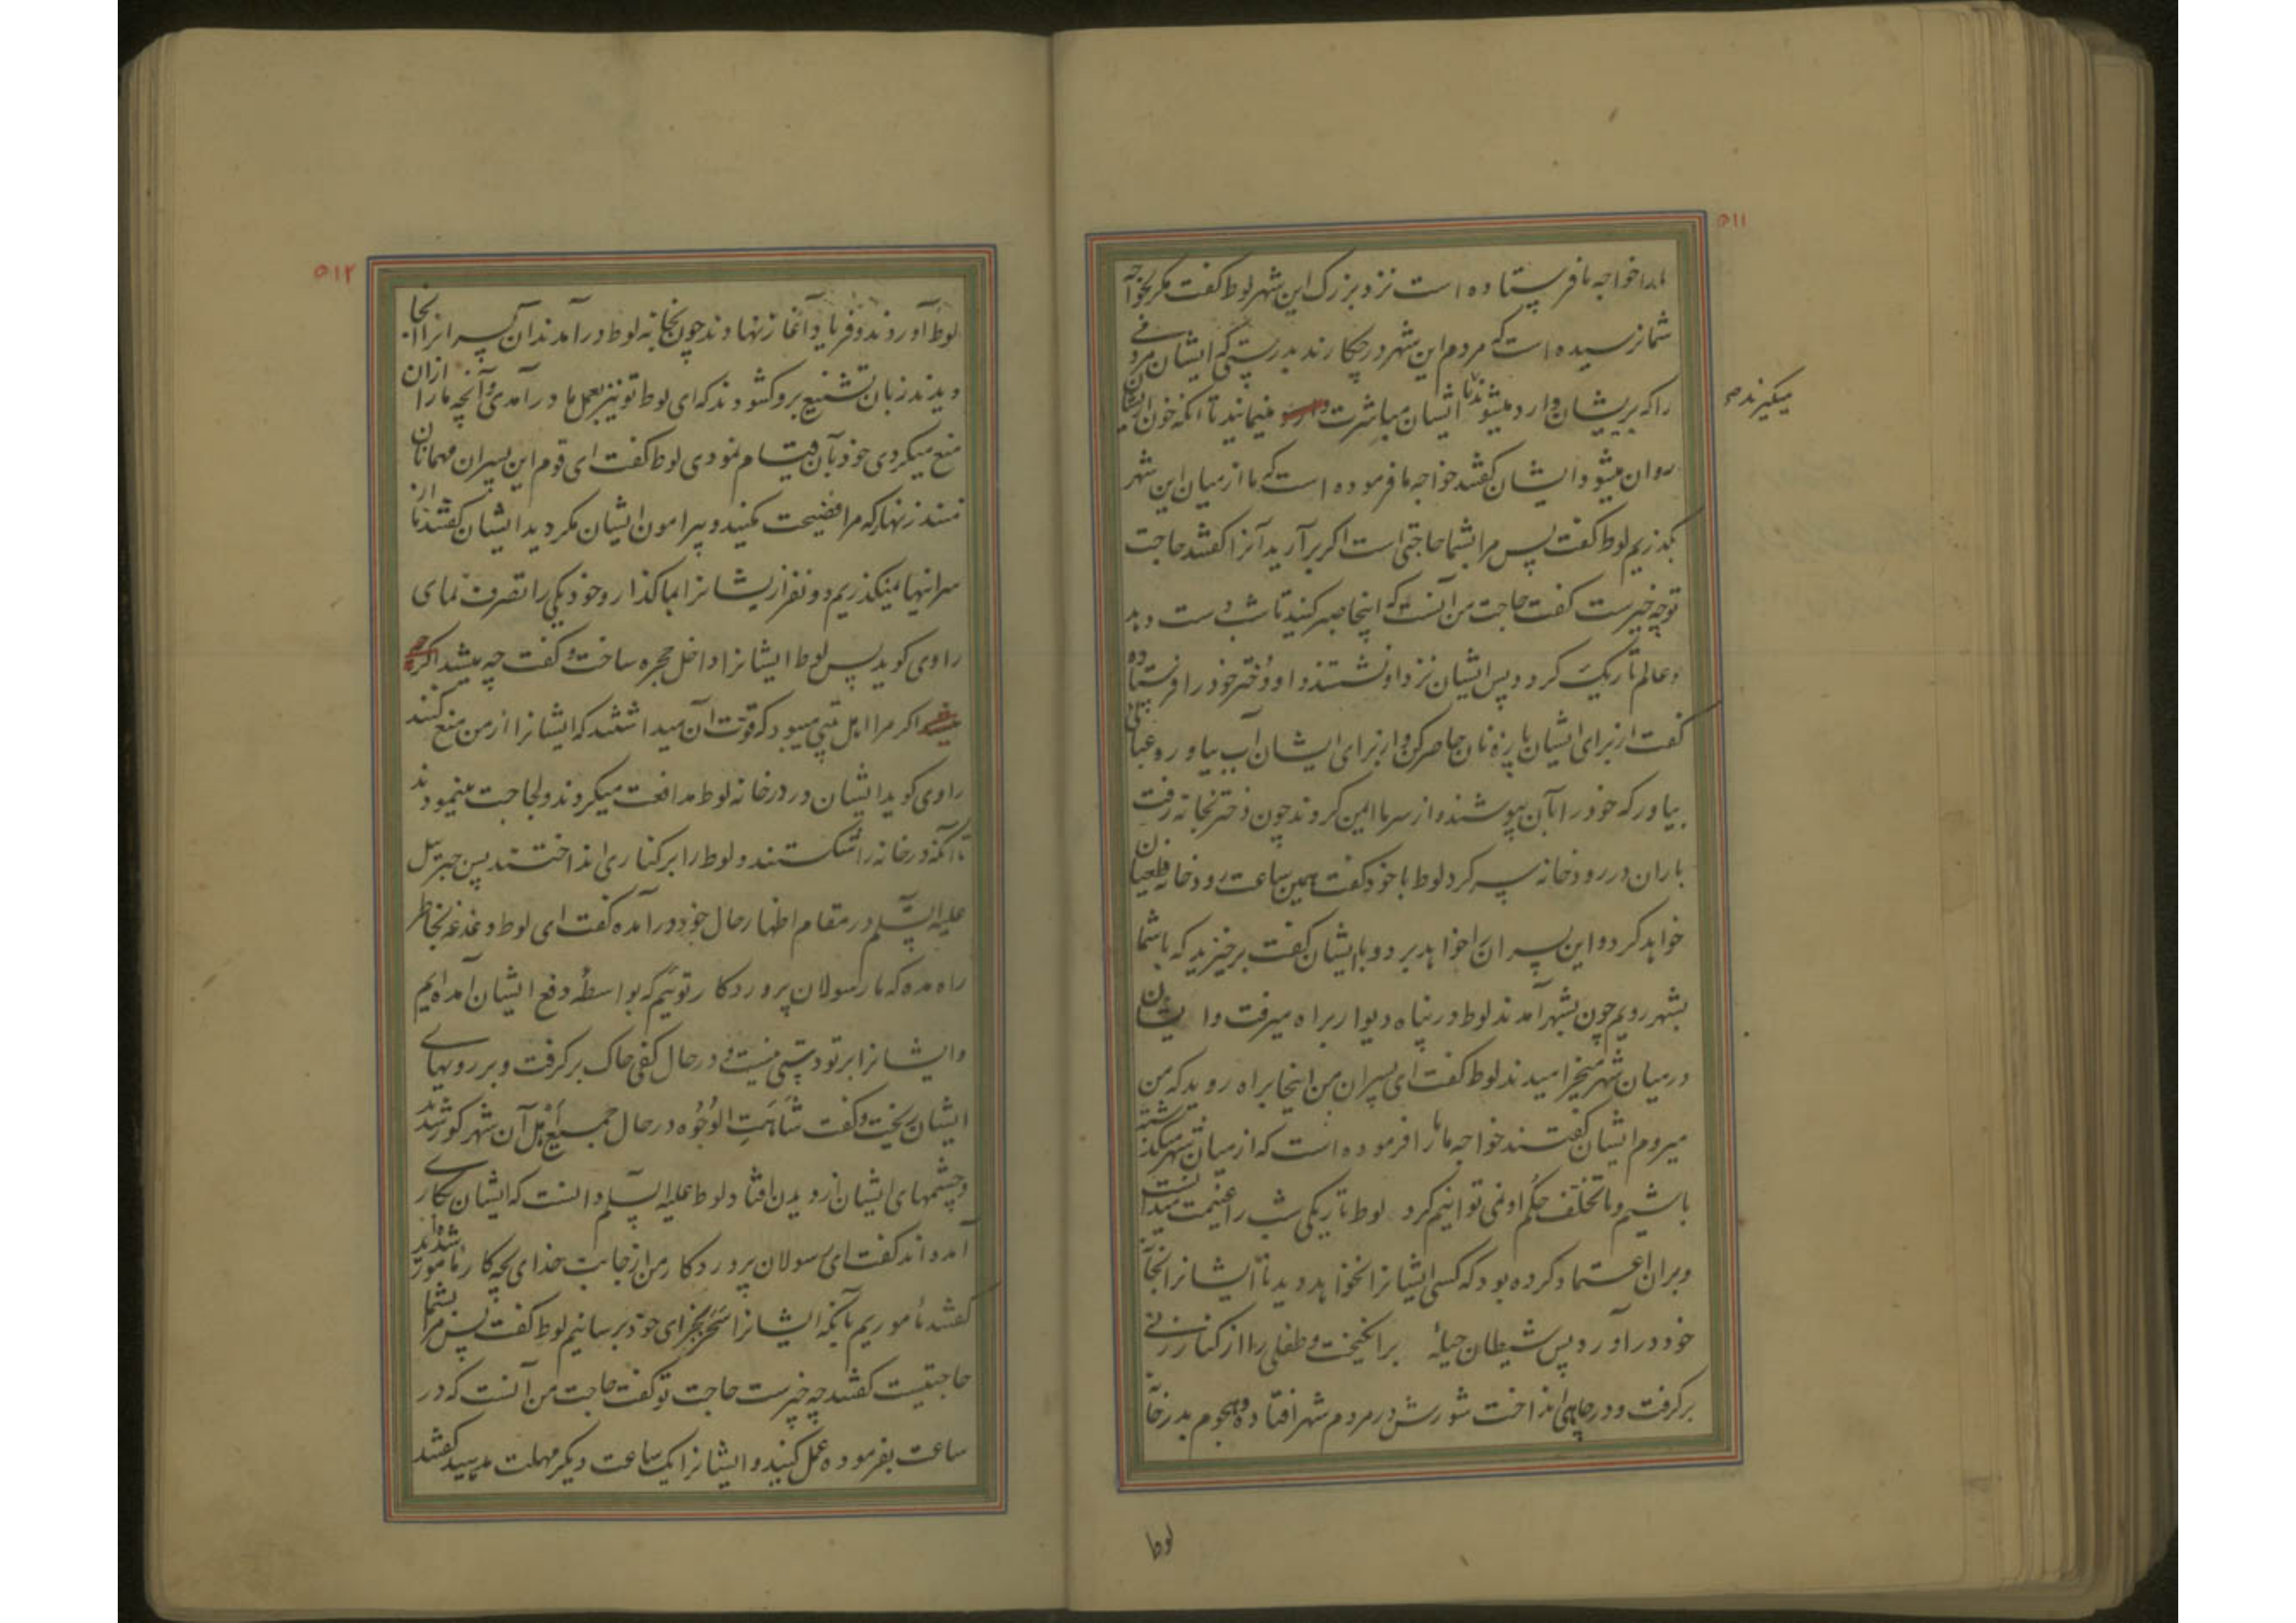 ۵۱۱
ما را خواجه ما فرستاده است نزد بزرگ این شهر لوط گفت مگر بخواجه
شما نرسیده است که مردم این شهر در چکارند بدرستی که ایشان مردمی
را که بریشان وارد میشوند تا ایشان مباشرت مینمایند تا آنکه خون ازیشان
میگیرند صح
روان میشود ایشان گفتند خواجه ما فرموده است که ما از میان این شهر
بگذریم لوط گفت پس مرا بشما حاجتی است اگر برآرید آنرا گفتند حاجت
تو چه خیرست گفت حاجت من آنست که اینجا صبر کنید تا شب دست دهد
و عالم تاریک گردد پس ایشان نزد او نشستند و او دختر خود را فرستاده
گفت از برای ایشان پارهٔ نان حاضر کن و از برای ایشان آب بیاور و عبائی
بیاور که خود را بآن بپوشند و از سرما ایمن گردند چون دختر بخانه رفت
باران در رودخانه سر کرد لوط با خود گفت همین ساعت رودخانه طغیان
خواهد کرد و این پسران را خواهد برد و با ایشان گفت برخیزید که با شما
بشهر رویم چون بشهر آمدند لوط در پناه دیوار براه میرفت و ایشان
در میان شهر میخرامیدند لوط گفت ای پسران من اینجا براه روید که من
میروم ایشان گفتند خواجه ما ما را فرموده است که از میان شهر میگذشته
باشیم و ما تخلف حکم او نمی توانیم کرد لوط تاریکی شب را غنیمت میدانست
و بران اعتماد کرده بود که کسی ایشانرا نخواهد دید تا ایشانرا بخانه
خود درآورد پس شیطان حیلهٔ برانگیخت و طفلی را از کنار زنی
برگرفت و در چاهی انداخت شورش در مردم شهر افتاده و هجوم بدر خانه
لوط
۵۱۲
لوط آوردند و فریاد آغاز نهادند چون بخانه لوط درآمدند آن پسرانرا آنجا
دیدند زبان تشنیع برو گشودند که ای لوط تو نیز بعمل ما درآمدی و آنچه ما را از آن
منع میکردی خود بآن قیام نمودی لوط گفت ای قوم این پسران مهمانان
منند زنهار که مرا فضیحت مکنید و پیرامون ایشان مگردید ایشان گفتند ما از
سر اینها نمیگذریم دو نفر ازیشانرا بما گذار و خود یکی را تصرف نمای
راوی گوید پس لوط ایشانرا داخل حجره ساخت و گفت چه میشد اگر
اگر مرا اهل بیتی میبود که قوّت آن میداشتند که ایشانرا از من منع کنند
راوی گوید ایشان در در خانه لوط مدافعت میکردند و لجاجت مینمودند
تا آنکه در خانه را شکستند و لوط را بر کناری انداختند پس جبرئیل
علیه السّلم در مقام اظهار حال خود درآمده گفت ای لوط دغدغه بخاطر
راه مده که ما رسولان پروردگار توئیم که بواسطهٔ دفع ایشان آمده‌ایم
و ایشانرا بر تو دستی نیست و در حال کفی خاک برگرفت و بر رویهای
ایشان ریخت و گفت شَاهَتِ الوُجُوه در حال جمیع اَهل آن شهر کور شدند
و چشمهای ایشان از دیدن افتاد لوط علیه السّلم دانست که ایشان بکاری
آمده‌اند گفت ای رسولان پروردگار من از جانب خدای بچه کار مامور شده‌اید
گفتند مأموریم بآنکه ایشانرا سَحَر بجزای خود برسانیم لوط گفت پس مرا بشما
حاجتیست گفتند چه خیرست حاجت تو گفت حاجت من آنست که در
ساعت بفرموده عمل کنید و ایشانرا یکساعت دیگر مهلت مدهید گفتند